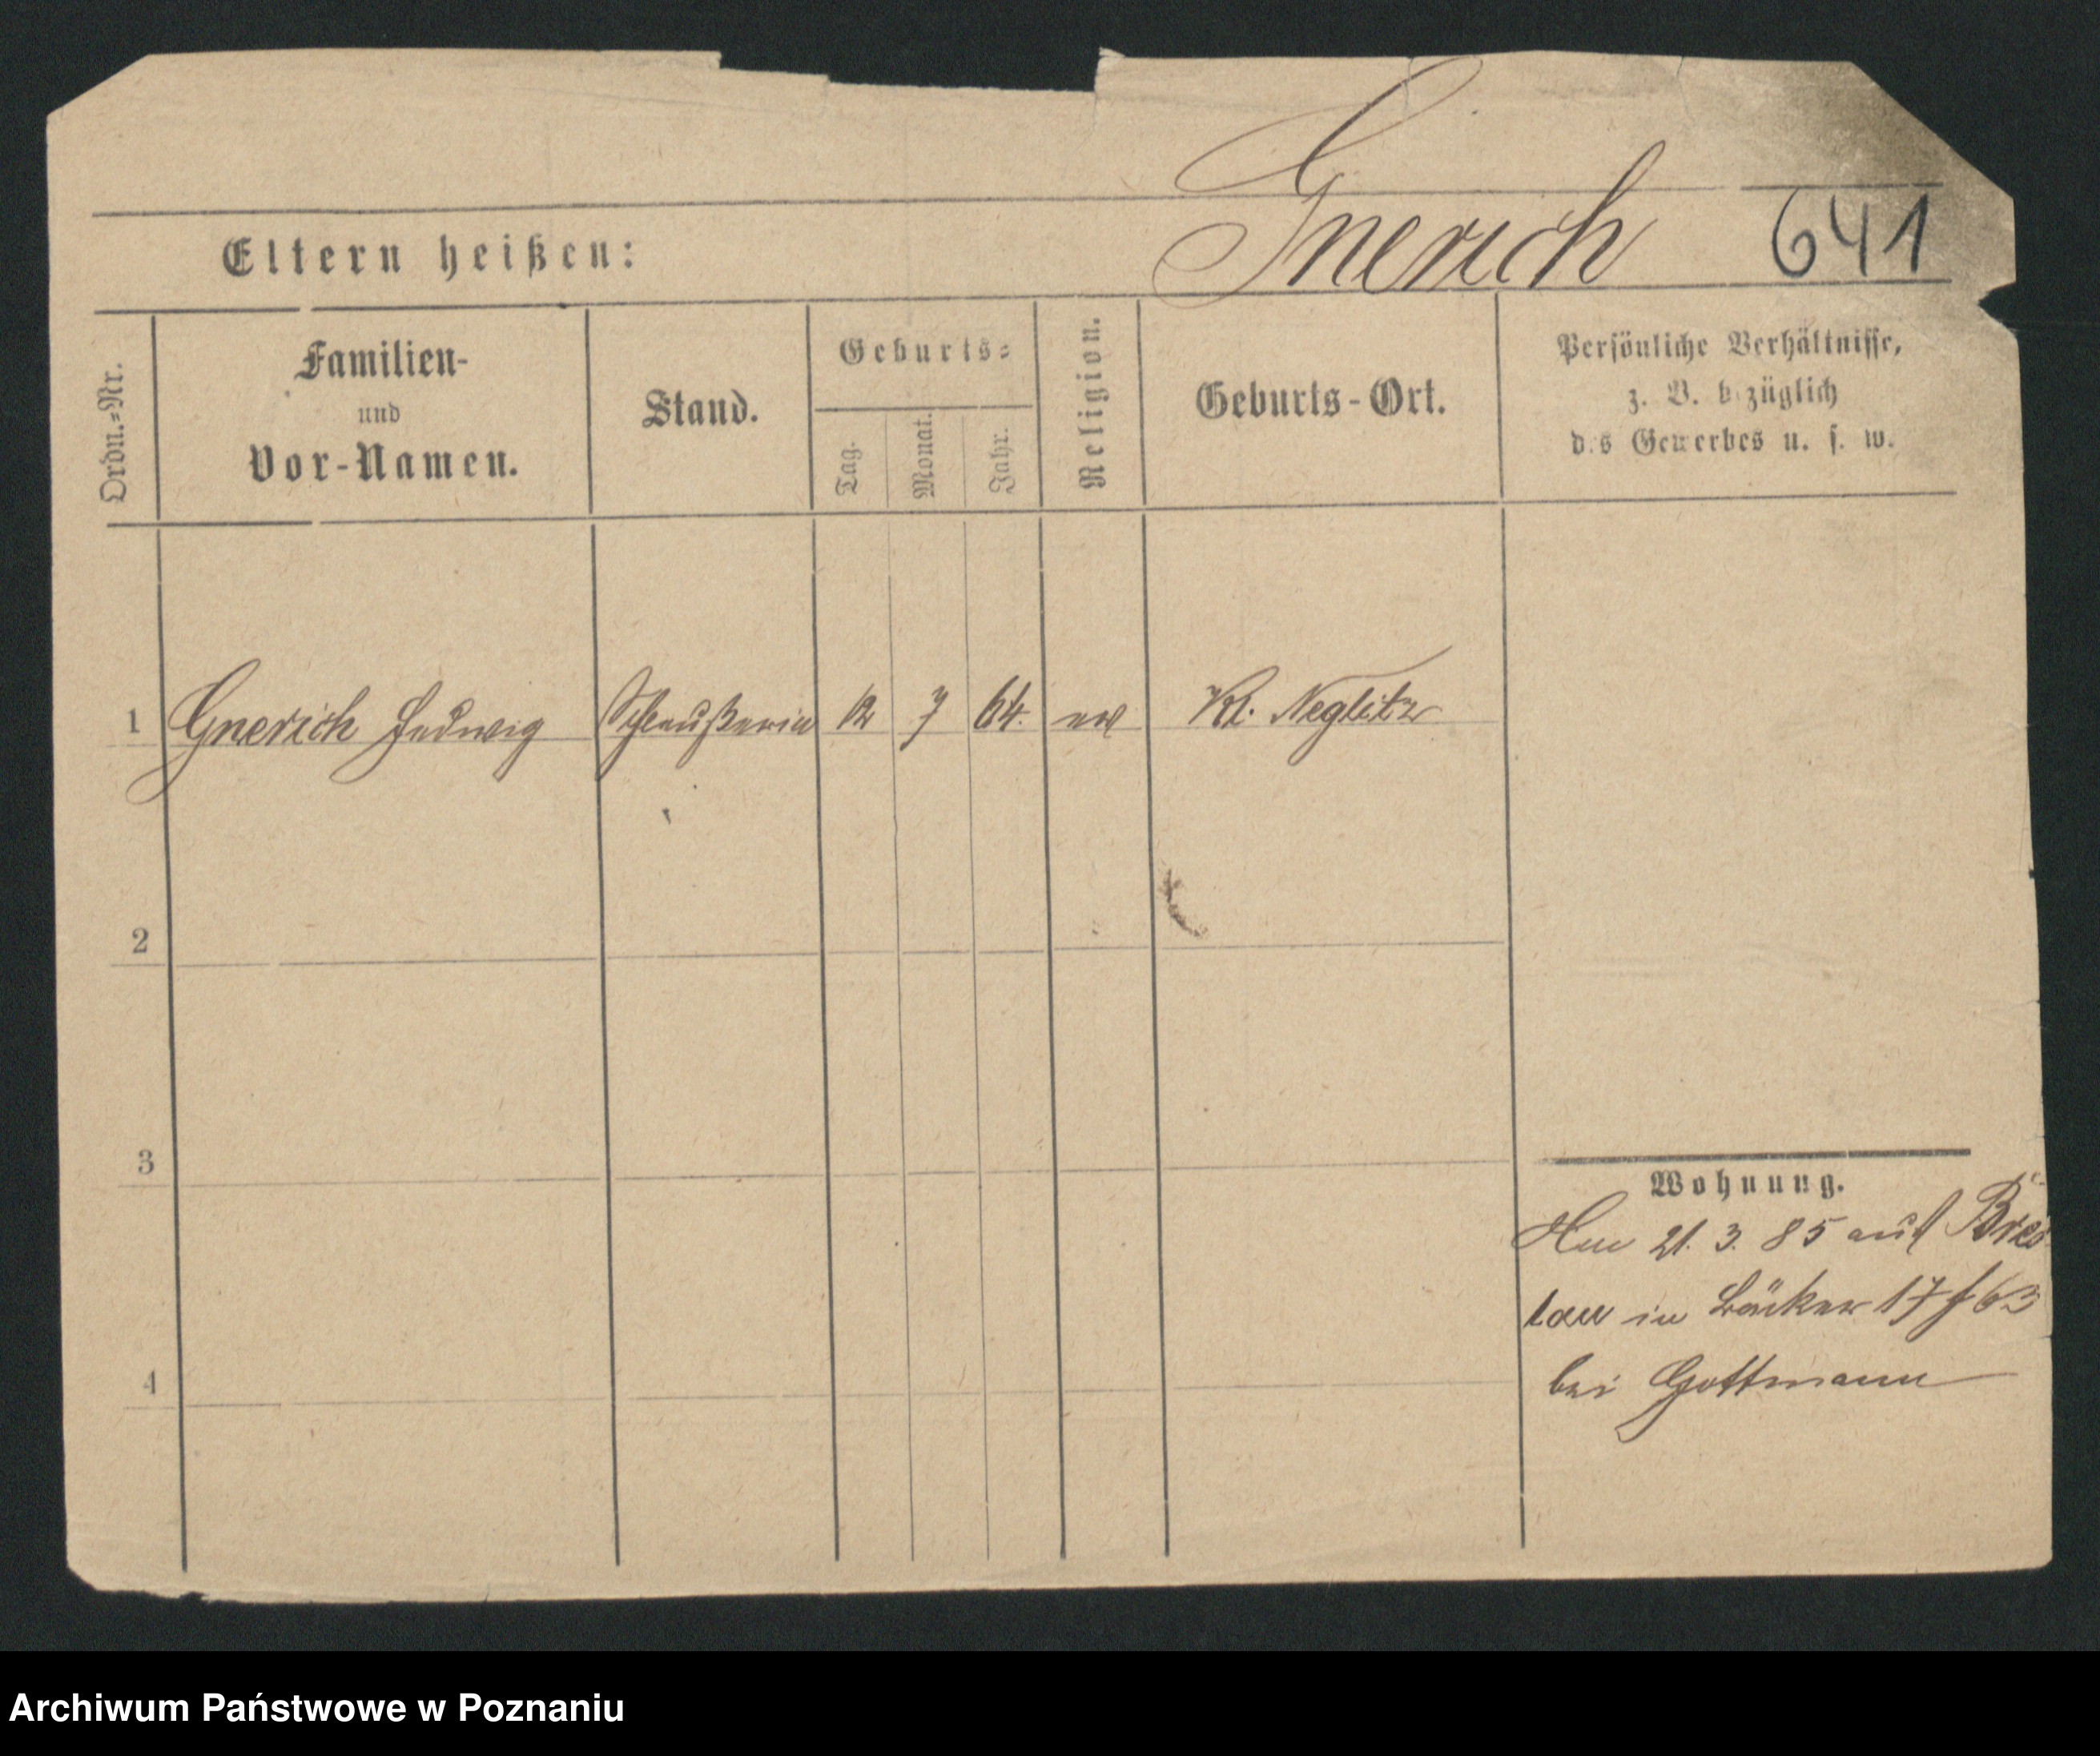 Gnerich 641
Eltern heißen:
Ordn.=Nr.
Familien-
und
Vor-Namen.
Stand.
Geburts=
Tag.
Monat.
Jahr.
Religion.
Geburts-Ort.
Persönliche Verhältnisse,
z. B. bezüglich
des Gewerbes u. s. w.
1 Gnerich Hedwig Schleußerin 12 7 64. ev Kl. Neglitz
2
3
4
Wohnung.
21. 3. 85 aus Bres
lau in Bäcker 17 f 63
bei Gottmann
Archiwum Państwowe w Poznaniu